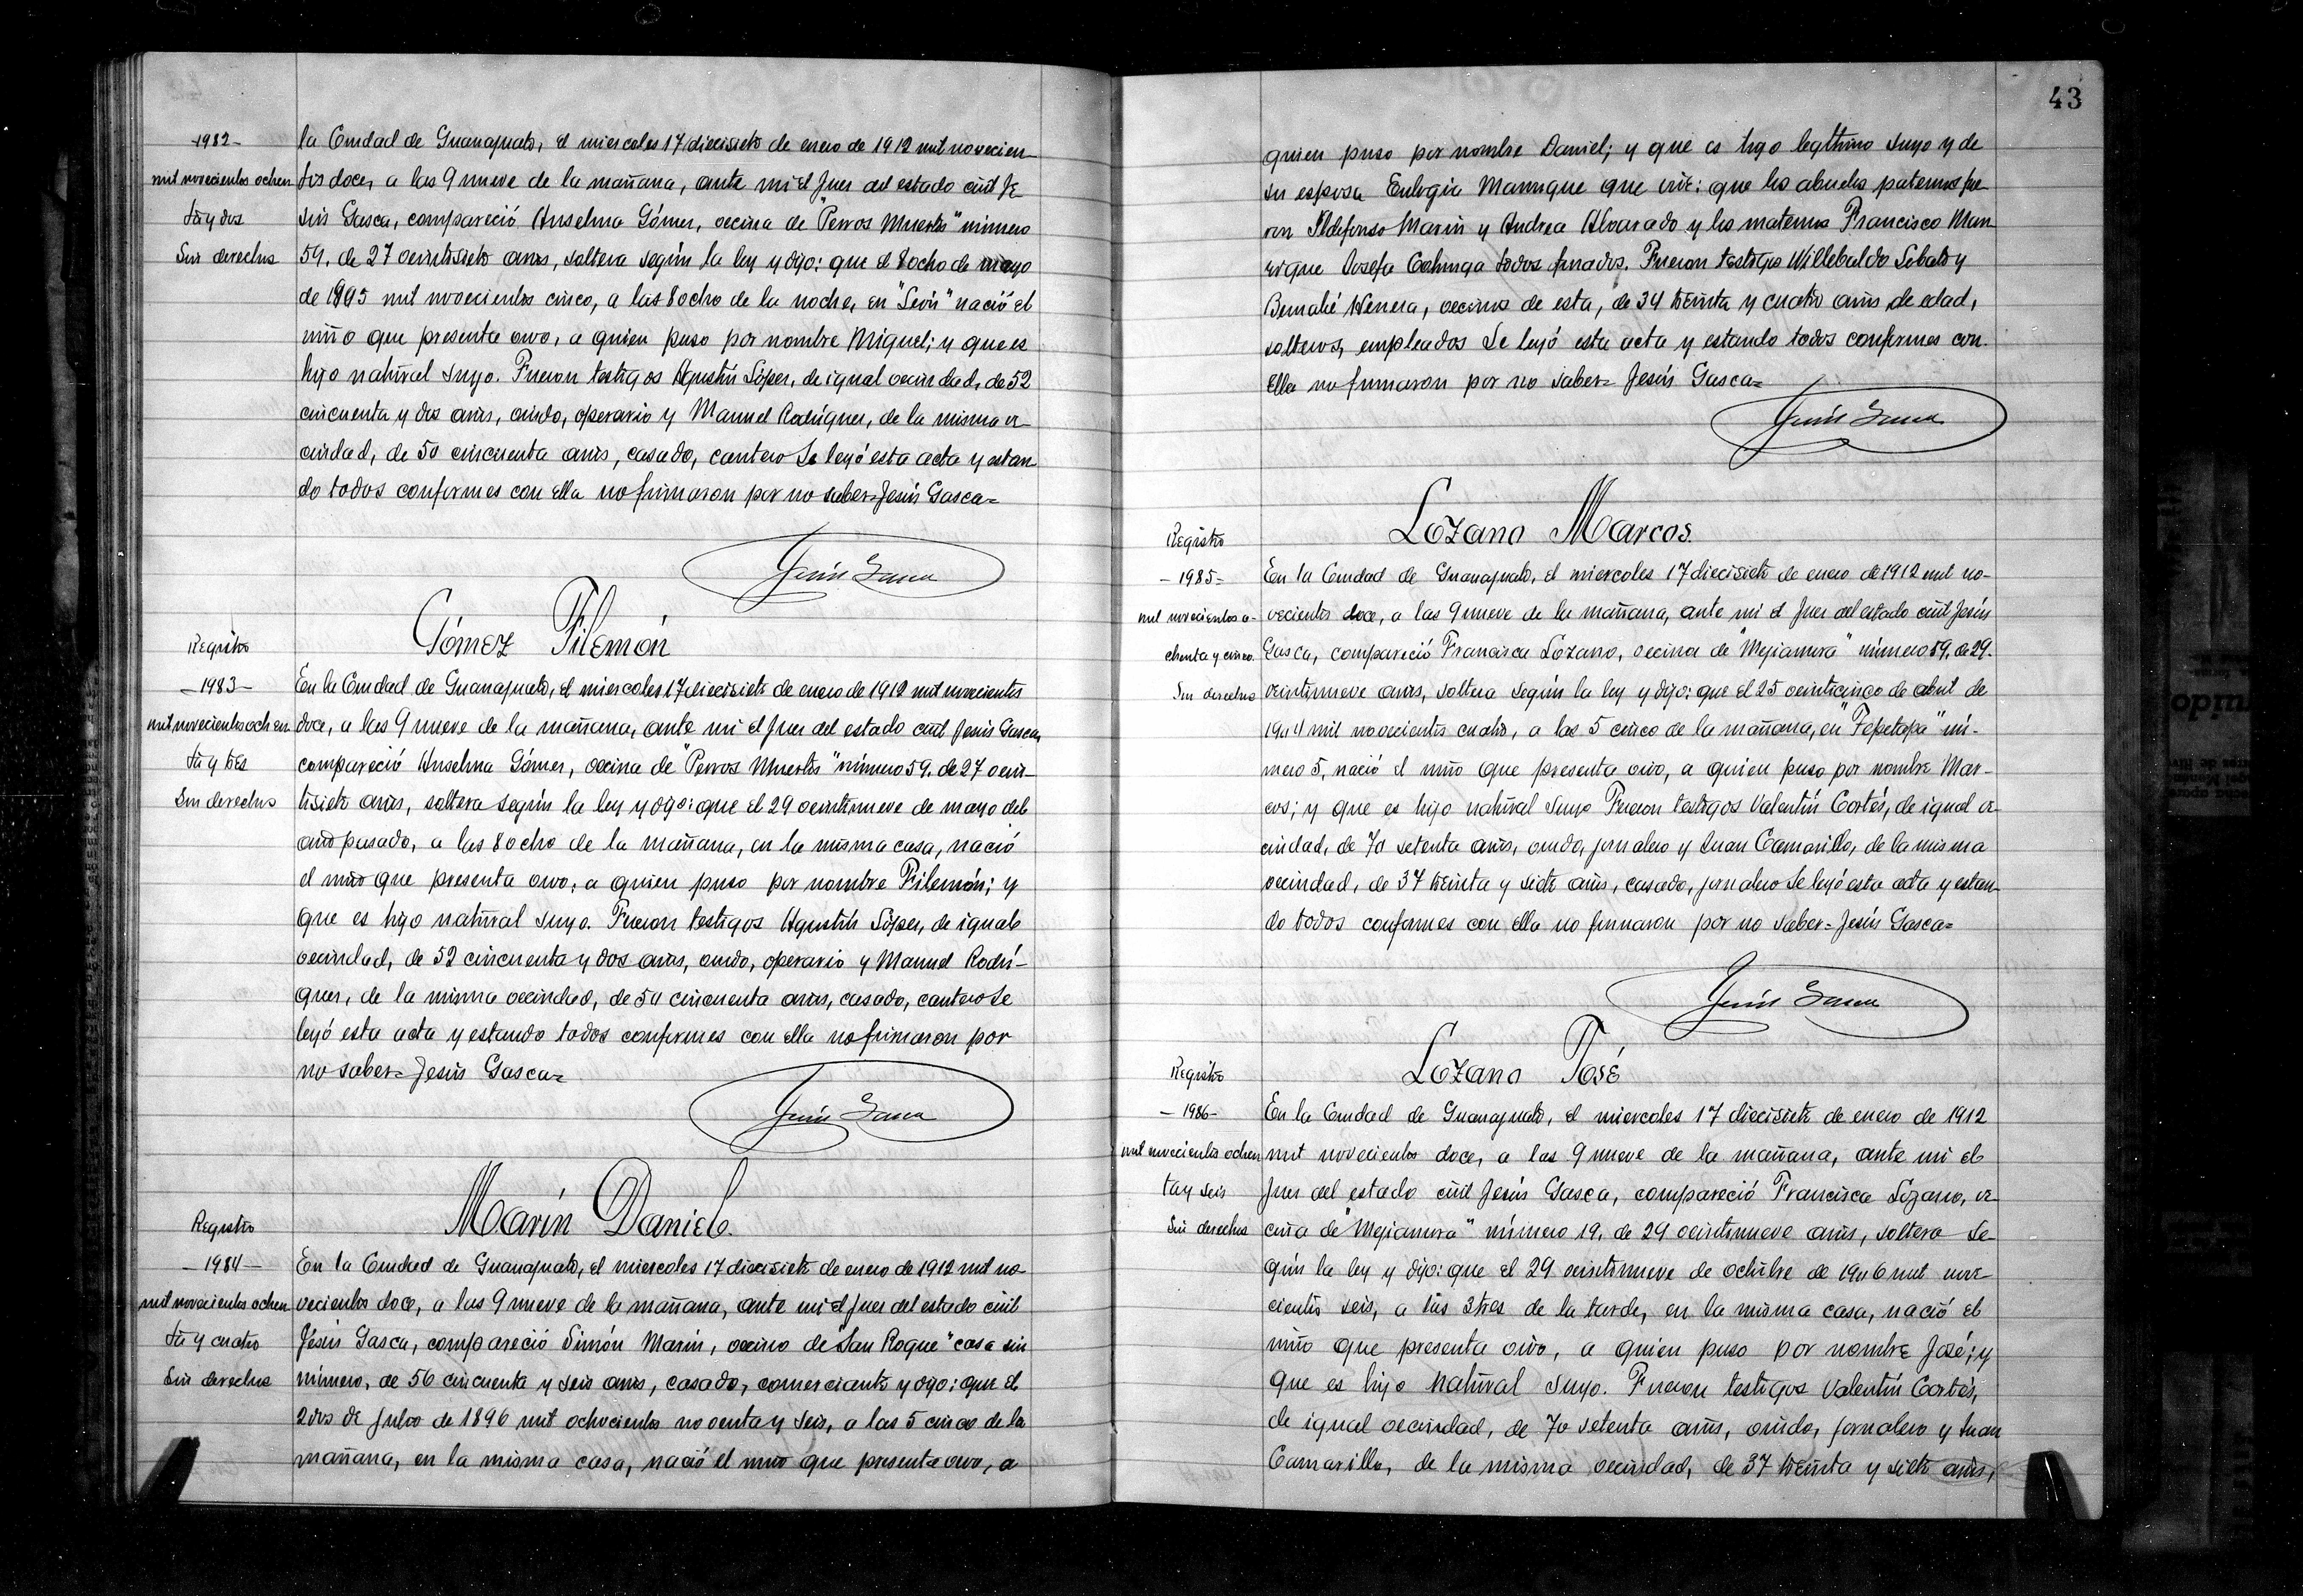 -1982-
mil novecientos ochen
ta y dos
Sin derechos
la Ciudad de Guanajuato, el miercoles 17 diecisiete de enero de 1912 mil novecien-
tos doce, a las 9 nueve de la mañana, ante mi el Juez del estado civil Je
sús Gasca, compareció Anselma Gómez, vecina de "Perros Muertos" número
59, de 27 veintisiete años, soltera según la ley y dijo: que el 8 ocho de mayo
de 1905 mil novecientos cinco, a las 8 ocho de la noche, en "León" nació el
niño que presenta vivo, a quien puso por nombre Miguel; y que es
hijo natural suyo. Fueron testigos Agustín López, de igual vecindad, de 52
cincuenta y dos años, viudo, operario y Manuel Rodríguez, de la misma ve-
cindad, de 50 cincuenta años, casado, cantero Se leyó esta acta y estan
do todos conformes con ella no firmaron por no saber=Jesús Gasca=
Jesús Gasca
Gómez Filemón
Registro
-1983-
mil novecientos ochen
ta y tres
Sin derechos
En la Ciudad de Guanajuato, el miercoles 17 diecisiete de enero de 1912 mil novecientos
doce, a las 9 nueve de la mañana, ante mi el Juez del estado civil Jesús Gasca,
compareció Anselma Gómez, vecina de "Perros Muertos" número 59, de 27 vein-
tisiete años, soltera según la ley y dijo: que el 29 veintinueve de mayo del
año pasado, a las 8 ocho de la mañana, en la misma casa, nació
el niño que presenta vivo, a quien puso por nombre Filemón; y
que es hijo natural suyo. Fueron testigos Agustín López, de igual
vecindad, de 52 cincuenta y dos años, viudo, operario y Manuel Rodrí-
guez, de la misma vecindad, de 50 cincuenta años, casado, cantero Se
leyó esta acta y estando todos conformes con ella no firmaron por
no saber= Jesús Gasca=
Jesús Gasca
Marín Daniel.
Registro
-1984-
mil novecientos ochen
ta y cuatro
Sin derechos
En la Ciudad de Guanajuato, el miercoles 17 diecisiete de enero de 1912 mil no-
vecientos doce, a las 9 nueve de la mañana, ante mi el Juez del estado civil
Jesús Gasca, compareció Simón Marín, vecino de "San Roque" casa sin
número, de 56 cincuenta y seis años, casado, comerciante y dijo: que el
2 dos de Julio de 1896 mil ochocientos noventa y seis, a las 5 cinco de la
mañana, en la misma casa, nació el niño que presenta vivo, a
43
quien puso por nombre Daniel; y que es hijo legítimo suyo y de
su esposa Eulogia Manrique que vive: que los abuelos paternos fue
ron Ildefonso Marín y Andrea Alvarado y los maternos Francisco Man
rique Josefa Colunga todos finados. Fueron testigos Willebaldo Lobato y
Bernabé Herrera, vecinos de esta, de 34 treinta y cuatro años de edad,
solteros, empleados Se leyó esta acta y estando todos conformes con
ella no firmaron por no saber= Jesús Gasca=
Jesús Gasca
Lozano Marcos.
Registro
-1985=
mil novecientos o-
chenta y cinco.
Sin derechos
En la Ciudad de Guanajuato, el miercoles 17 diecisiete de enero de 1912 mil no-
vecientos doce, a las 9 nueve de la mañana, ante mi el Juez del estado civil Jesús
Gasca, compareció Francisca Lozano, vecina de "Mejiamora" número 59, de 29-
veintinueve años, soltera según la ley y dijo: que el 25 veinticinco de abril de
1904 mil novecientos cuatro, a las 5 cinco de la mañana, en "Tepetapa" nú-
mero 5, nació el niño que presenta vivo, a quien puso por nombre Mar-
cos; y que es hijo natural suyo Fueron testigos Valentín Cortés, de igual ve-
cindad, de 70 setenta años, viudo, jornalero y Juan Camarillo, de la misma
vecindad, de 37 treinta y siete años, casado, jornalero Se leyó esta acta y estan-
do todos conformes con ella no firmaron por no saber=Jesús Gasca=
Jesús Gasca
Lozano José
Registro
-1986-
mil novecientos ochen
ta y seis
Sin derechos
En la Ciudad de Guanajuato, el miercoles 17 diecisiete de enero de 1912
mil novecientos doce, a las 9 nueve de la mañana, ante mi el
Juez del estado civil Jesús Gasca, compareció Francisca Lozano, ve-
cina de "Mejiamora" número 19, de 29 veintinueve años, soltera se-
gún la ley y dijo: que el 29 veintinueve de octubre de 1906 mil nove-
cientos seis, a las 3 tres de la tarde, en la misma casa, nació el
niño que presenta vivo, a quien puso por nombre José; y
que es hijo natural suyo. Fueron testigos Valentín Cortés,
de igual vecindad, de 70 setenta años, viudo, jornalero y Juan
Camarillo, de la misma vecindad, de 37 treinta y siete años,